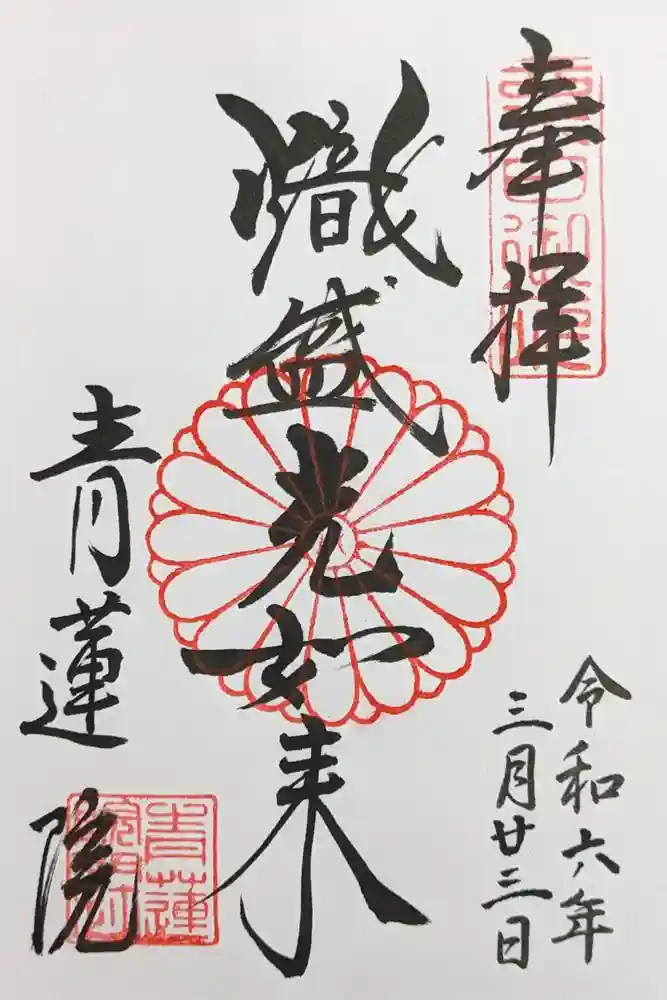 奉拝
令和六年
三月廿三日
熾盛光如来
青蓮院
粟田御所
青蓮院門跡